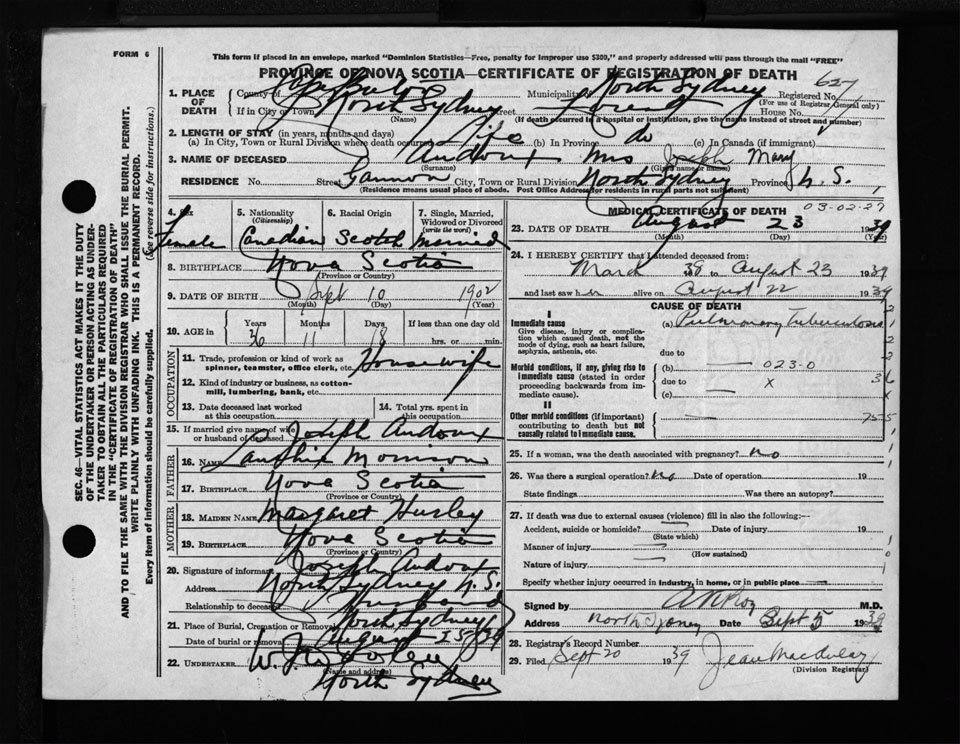 FORM 6
This form if placed in an envelope, marked "Dominion Statistics—Free, penalty for improper use $300," and properly addressed will pass through the mail "FREE"
PROVINCE OF NOVA SCOTIA—CERTIFICATE OF REGISTRATION OF DEATH
1. PLACE OF DEATH
County of Cape Breton Municipality North Sydney Registered No. 627
(For use of Registrar General only)
If in City or Town North Sydney Street House No.
(Name) (If death occurred in a hospital or institution, give the name instead of street and number)
2. LENGTH OF STAY (in years, months and days)
(a) In City, Town or Rural Division where death occurred Life (b) In Province do (c) In Canada (if immigrant)
3. NAME OF DECEASED Andoux Mrs Joseph Mary
(Surname) (Given name or names)
RESIDENCE No. Street Gannon City, Town or Rural Division North Sydney Province N. S.
(Residence means usual place of abode. Post Office Address for residents in rural parts not sufficient)
4. Sex Female
5. Nationality (Citizenship) Canadian
6. Racial Origin Scotch
7. Single, Married, Widowed or Divorced (write the word) Married
8. BIRTHPLACE Nova Scotia
(Province or Country)
9. DATE OF BIRTH Sept 10 1902
(Month) (Day) (Year)
10. AGE in Years Months Days If less than one day old
36 11 13 hrs. or min.
OCCUPATION
11. Trade, profession or kind of work as spinner, teamster, office clerk, etc. Housewife
12. Kind of industry or business, as cotton-mill, lumbering, bank, etc.
13. Date deceased last worked at this occupation
14. Total yrs. spent in this occupation
15. If married give name of wife or husband of deceased Joseph Andoux
FATHER
16. Name Lauchie Morrison
17. Birthplace Nova Scotia
(Province or Country)
MOTHER
18. Maiden Name Margaret Hurley
19. Birthplace Nova Scotia
(Province or Country)
20. Signature of informant Joseph Andoux
Address North Sydney N. S.
Relationship to deceased Husband
21. Place of Burial, Cremation or Removal North Sydney
Date of burial or removal August 25/39
22. UNDERTAKER W. J.
(Name and address)
North Sydney
MEDICAL CERTIFICATE OF DEATH
03-02-27
23. DATE OF DEATH August 23 1939
(Month) (Day) (Year)
24. I HEREBY CERTIFY that I attended deceased from:
March 38 to August 23 1939
and last saw her alive on August 22 1939
CAUSE OF DEATH
I
Immediate cause
Give disease, injury or complication which caused death, not the mode of dying, such as heart failure, asphyxia, asthenia, etc.
(a) Pulmonary Tuberculosis
due to
Morbid conditions, if any, giving rise to immediate cause (stated in order proceeding backwards from immediate cause).
(b) 023-0
due to x
(c)
II
Other morbid conditions (if important) contributing to death but not causally related to immediate cause.
25. If a woman, was the death associated with pregnancy? no
26. Was there a surgical operation? No Date of operation 19
State findings Was there an autopsy?
27. If death was due to external causes (violence) fill in also the following:—
Accident, suicide or homicide? Date of injury 19
(State which)
Manner of injury
(How sustained)
Nature of injury
Specify whether injury occurred in industry, in home, or in public place
Signed by M.D.
Address North Sydney Date Sept 5 1939
28. Registrar's Record Number
29. Filed Sept 20 1939
(Division Registrar)
SEC. 46—VITAL STATISTICS ACT MAKES IT THE DUTY
OF THE UNDERTAKER OR PERSON ACTING AS UNDER-
TAKER TO OBTAIN ALL THE PARTICULARS REQUIRED
IN THE "CERTIFICATE OF REGISTRATION OF DEATH"
AND TO FILE THE SAME WITH THE DIVISION REGISTRAR WHO SHALL ISSUE THE BURIAL PERMIT.
WRITE PLAINLY WITH UNFADING INK. THIS IS A PERMANENT RECORD.
Every item of information should be carefully supplied. (See reverse side for instructions.)